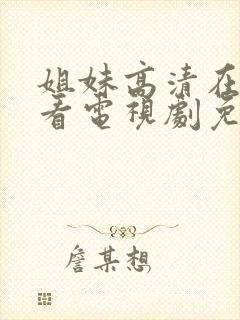 姐妹高清在
看電視劇免
詹某想